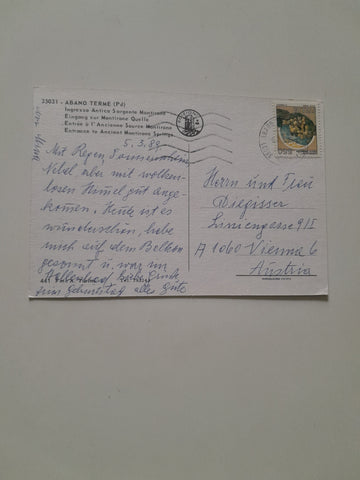 35031 - ABANO TERME (PD)
Ingresso Antica Sorgente Montirone
Eingang zur Montirone Quelle
Entrée à l'Ancienne Source Montirone
Entrance to Ancient Montirone Springs
5.3.89
Mit Regen, Sonnenschein
Nebel aber mit wolken-
losen Himmel gut ange-
kommen. Heute ist es
wunderschön, habe
mich auf dem Balkon
gesonnt u. war im
Hallenbad
zum Geburtstag alles Gute
Herrn und Frau
Diegisser
Liniengasse 9/I
A 1060 Vienna 6
Austria